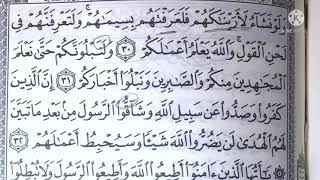 وَلَوْ نَشَآءُ لَأَرَيْنَٰكَهُمْ فَلَعَرَفْتَهُم بِسِيمَٰهُمْ ۚ وَلَتَعْرِفَنَّهُمْ فِى
لَحْنِ ٱلْقَوْلِ ۚ وَٱللَّهُ يَعْلَمُ أَعْمَٰلَكُمْ ٣٠ وَلَنَبْلُوَنَّكُمْ حَتَّىٰ نَعْلَمَ
ٱلْمُجَٰهِدِينَ مِنكُمْ وَٱلصَّٰبِرِينَ وَنَبْلُوَا۟ أَخْبَارَكُمْ ٣١ إِنَّ ٱلَّذِينَ
كَفَرُوا۟ وَصَدُّوا۟ عَن سَبِيلِ ٱللَّهِ وَشَآقُّوا۟ ٱلرَّسُولَ مِنۢ بَعْدِ مَا تَبَيَّنَ
لَهُمُ ٱلْهُدَىٰ لَن يَضُرُّوا۟ ٱللَّهَ شَيْـًٔا وَسَيُحْبِطُ أَعْمَٰلَهُمْ ٣٢
۞ يَٰٓأَيُّهَا ٱلَّذِينَ ءَامَنُوٓا۟ أَطِيعُوا۟ ٱللَّهَ وَأَطِيعُوا۟ ٱلرَّسُولَ وَلَا تُبْطِلُوٓا۟